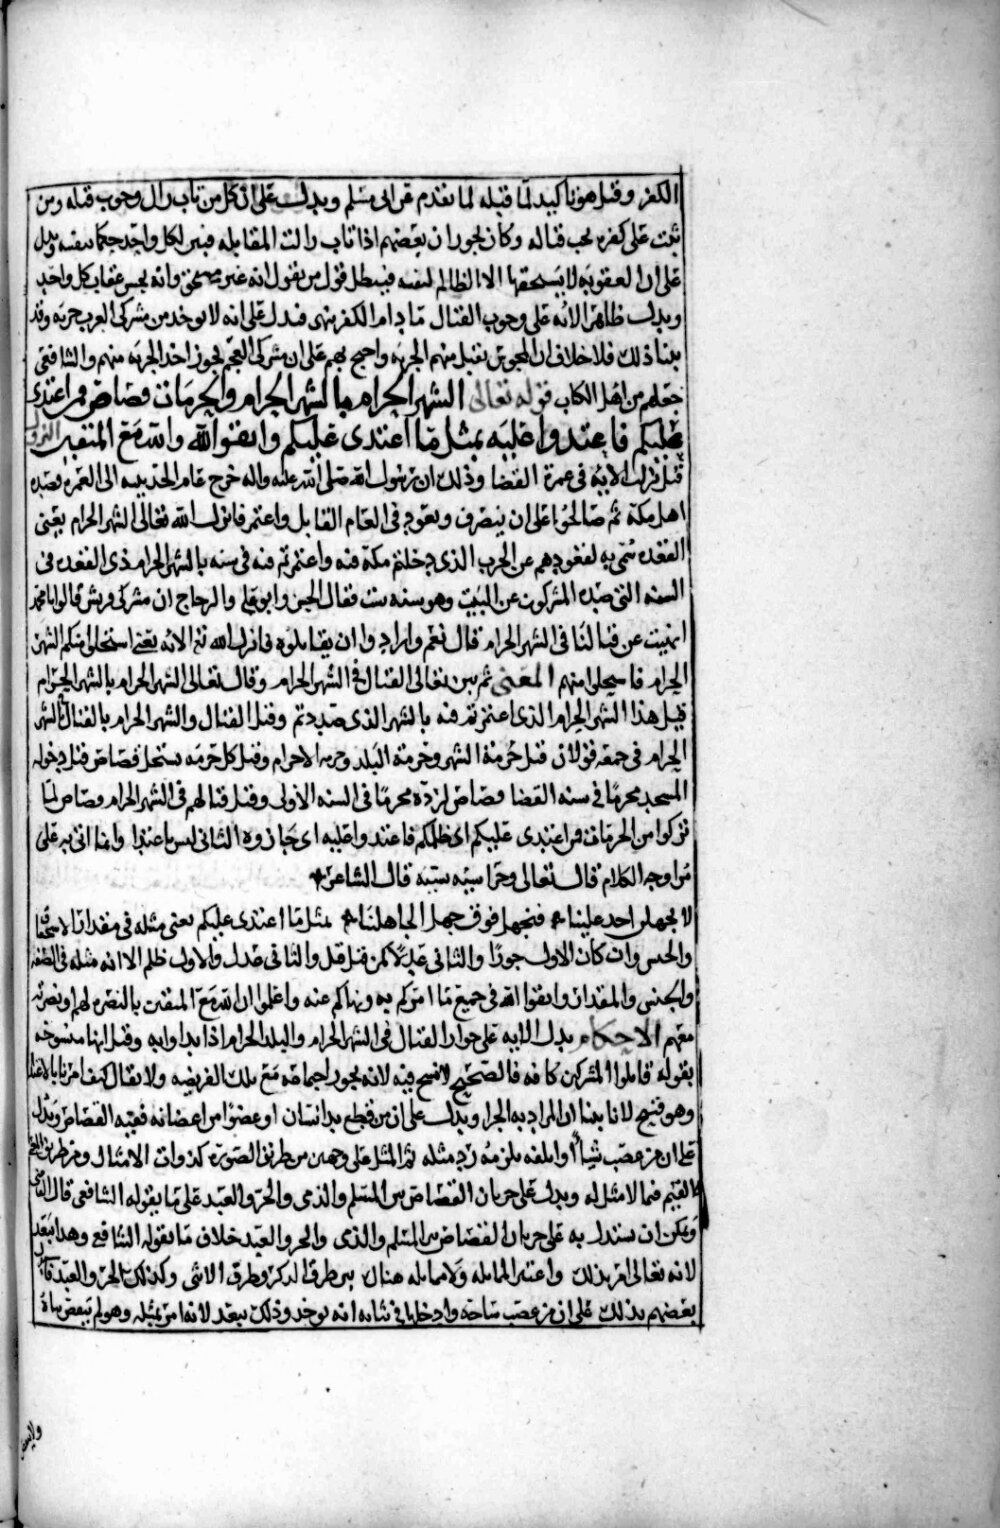 الكفر وقيل هو تاكيد لما قبله لما تقدم عن ابي مسلم ويدل على ان كل من تاب زال وجوب قتله ومن
ثبت على كفره يجب قتاله وكان يجوز ان بعضهم اذا تاب زالت المقابله فبين لكل واحد حكما بنفسه ويدل
على ان العقوبه لا يستحقها الا الظالم لنفسه فيبطل قول من يقول انه غير مستحق وانه يحسن عقاب كل واحد
ويدل ظاهر الايه على وجوب القتال ما دام الكفر منهم فدل على انه لا يوخذ من مشركي العرب جزيه وقد
بينا ذلك فلا خلاف ان المجوس تقبل منهم الجزيه واحتج بهم على ان مشركي العجم يجوز اخذ الجزيه منهم والشافعي
جعلهم من اهل الكتاب قوله تعالى الشهر الحرام بالشهر الحرام والحرمات قصاص فمن اعتدى
عليكم فاعتدوا عليه بمثل ما اعتدى عليكم واتقوا الله والله مع المتقين النزول
قيل نزلت الايه في عمرة القضا وذلك ان رسول الله صلى الله عليه واله خرج عام الحديبيه الى العمره فصده
اهل مكة ثم صالحوا على ان ينصرف ويعود في العام القابل واعتمر فانزل الله تعالى الشهر الحرام يعني
القعده سمي به لقعودهم عن الحرب الذي دخلتم مكة فيه واعتمرتم فيه في سنه بالشهر الحرام ذي القعده في
السنه التي صده المشركون عن البيت وهو سنه ست فقال الحسن وابو علي والزجاج ان مشركي قريش قالوا يا محمد
انهيت عن قتالنا في الشهر الحرام قال نعم وارادوا ان يقاتلوه فانزل الله تع الايه يعني استحلوا منكم الشهر
الحرام فاستحلوا منهم المعنى ثم بين تعالى القتال في الشهر الحرام وقال تعالى الشهر الحرام بالشهر الحرام
قيل هذا الشهر الحرام الذي اعتمرتم فيه بالشهر الذي صددتم وقيل القتال والشهر الحرام بالقتال في الشهر
الحرام في جمعه قولان قيل حرمة الشهر وحرمة البلد وحرمه الاحرام وقيل كل حرمه تستحل قصاص قيل دخوله
المسجد محرما في سنه القضا قصاص لرده محرما في السنه الاولى وقيل قتالهم في الشهر الحرام قصاص لما
تركوا من الحرمات فمن اعتدى عليكم اي ظلمكم فاعتدوا عليه اي جازوه الثاني ليس باعتدا وانما اتى به على
مزاوجه الكلام قال تعالى وجزا سيئه سيئه قال الشاعر
لا يجهلن احد علينا فنجهل فوق جهل الجاهلينا بمثل ما اعتدى عليكم يعني مثله في مقدار الاستحقاق
والجنس وان كان الاول جورا والثاني عدلا كمن قتل قتل والثاني عدل والاول ظلم الا انه مثله في الصفه
والجنس والمقدار واتقوا الله في جميع ما امركم به ونهاكم عنه واعلموا ان الله مع المتقين بالنصره لهم ونصرته
معهم الاحكام يدل الايه على جواز القتال في الشهر الحرام والبلد الحرام اذا بداوا به وقيل انها منسوخه
بقوله قاتلوا المشركين كافه فالصحيح لا نسخ فيه لانه يجوز اجتماعه مع تلك الفريضه ولا يقال كيف امرنا بالاعتدا
وهو قبيح لانا بينا ان المراد به الجزا ويدل على ان من قطع يد انسان او عضوا من اعضائه ففيه القصاص ويدل
على ان من غصب شيا او اتلفه يلزمه رد مثله ثم المثل على وجهين من طريق الصوره كذوات الامثال ومن طريق المعنى
كالقيم فيما لا مثل له ويدل على جريان القصاص بين المسلم والذمي والحر والعبد على ما يقوله الشافعي قال القاضي
ويمكن ان يستدل به على جريان القصاص بين المسلم والذمي والحر والعبد خلاف ما يقوله الشافعي وهذا يبعد
لانه تعالى امر بذلك واعتبر المماثله ولا مماثله هنا بين طرف الذكر وطرف الانثى وكذلك الحر والعبد فاستدل
بعضهم بذلك على ان من غصب ساحة وادخلها في بنائه انه يوخذ وذلك يبعد لانه امر بمثله وهو لم ينقض بناه